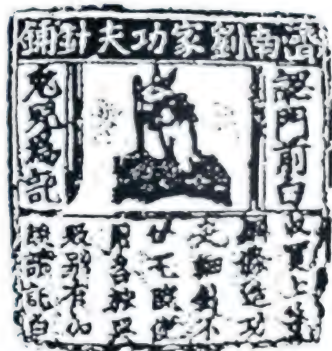 濟南劉家功夫針鋪
認門前白
兔兒爲記
收買上等
鋼條造功
夫細針不
宅院使
用
別有加
請記白